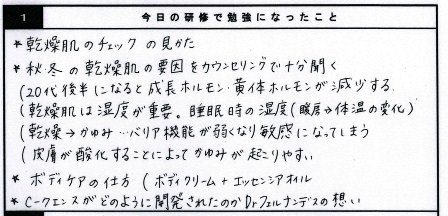 1 今日の研修で勉強になったこと
* 乾燥肌のチェックの見かた
* 秋冬の乾燥肌の要因をカウンセリングで十分聞く
(20代後半になると成長ホルモン・黄体ホルモンが減少する
(乾燥肌は湿度が重要。睡眠時の湿度(暖房→体温の変化)
(乾燥→かゆみ…バリア機能が弱くなり敏感になってしまう
(皮膚が酸化することによってかゆみが起こりやすい
* ボディケアの仕方 (ボディクリーム+エッセンシアオイル
* C-クエンスがどのように開発されたのか Dr.フェルナンデスの想い